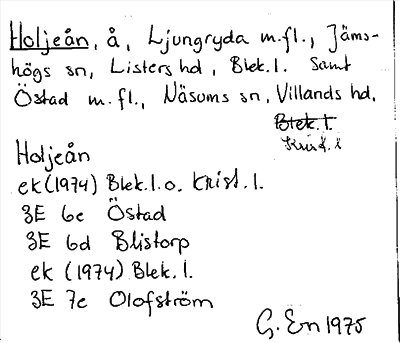 Holjeån, å, Ljungryda m.fl., Jäms-
högs sn, Listers hd, Blek.l. samt
Östad m.fl., Näsums sn, Villands hd,
Blek.l.
Krist.l
Holjeån
ek (1974) Blek.l. o. Krist.l.
3E 6e Östad
3E 6d Blistorp
ek (1974) Blek.l.
3E 7e Olofström
G. En 1975